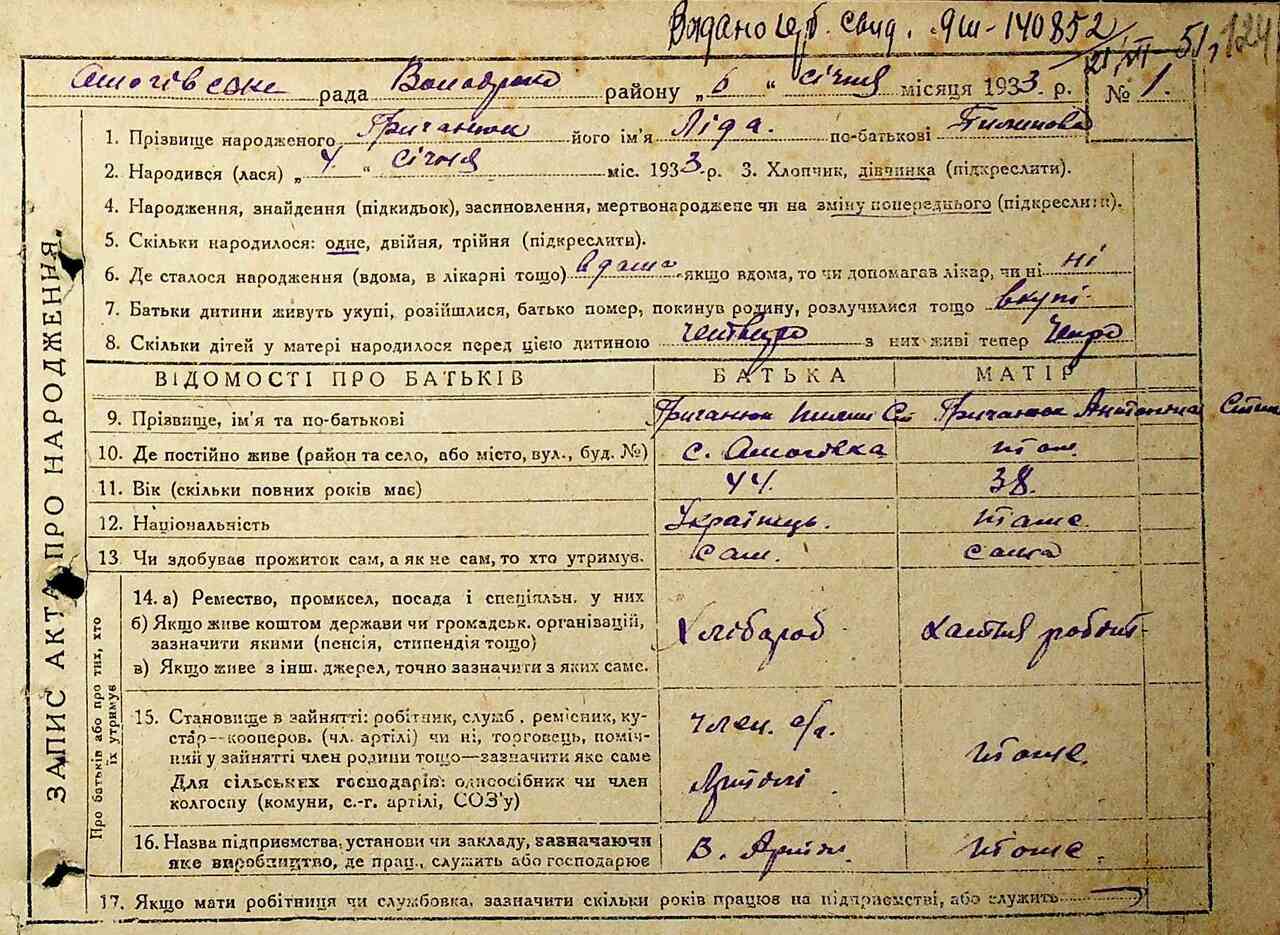 Видано свид. ЯШ-140852
21/VI 51, 124
рада району „6“ січня місяця 1933. р. № 1.
1. Прізвище народженого Гричанюк його ім'я Ліда. по-батькові Пилипова
2. Народився (лася) „4.“ січня міс. 1933 р. 3. Хлопчик, дівчинка (підкреслити).
4. Народження, знайдення (підкидьок), засиновлення, мертвонароджене чи на зміну попереднього (підкреслити).
5. Скільки народилося: одне, двійня, трійня (підкреслити).
6. Де сталося народження (вдома, в лікарні тощо) вдома якщо вдома, то чи допомагав лікар, чи ні ні
7. Батьки дитини живуть укупі, розійшлися, батько помер, покинув родину, розлучилися тощо вкупі
8. Скільки дітей у матері народилося перед цією дитиною четверо з них живі тепер
ВІДОМОСТІ ПРО БАТЬКІВ БАТЬКА МАТІР
9. Прізвище, ім'я та по-батькові Гричанюк Пилип Ст Гричанюк Антоніна Степ
10. Де постійно живе (район та село, або місто, вул., буд. №) с. тож
11. Вік (скільки повних років має) 44. 38.
12. Національність Українець. тоже
13 Чи здобував прожиток сам, а як не сам, то хто утримує. сам. сама
14. а) Ремество, промисел, посада і спеціяльн. у них
б) Якщо живе коштом держави чи громадськ. організацій,
зазначити якими (пенсія, стипендія тощо)
в) Якщо живе з інш. джерел, точно зазначити з яких саме.
Хлібароб хатня робіт
15. Становище в зайнятті: робітник, служб., ремісник, ку-
стар—кооперов. (чл. артілі) чи ні, торговець, поміч-
ний у зайнятті член родини тощо—зазначити яке саме
Для сільських господарів: одноосібник чи член
колгоспу (комуни, с.-г. артілі, СОЗ'у)
член. с/г.
Артілі
тоже.
16. Назва підприємства, установи чи закладу, зазначаючи
яке виробництво, де прац., служить або господарює
В. Артіл. тоже.
17. Якщо мати робітниця чи службовка, зазначити скільки років працює на підприємстві, або служить
ЗАПИС АКТА ПРО НАРОДЖЕННЯ.
Про батьків або про тих, хто
їх утримує